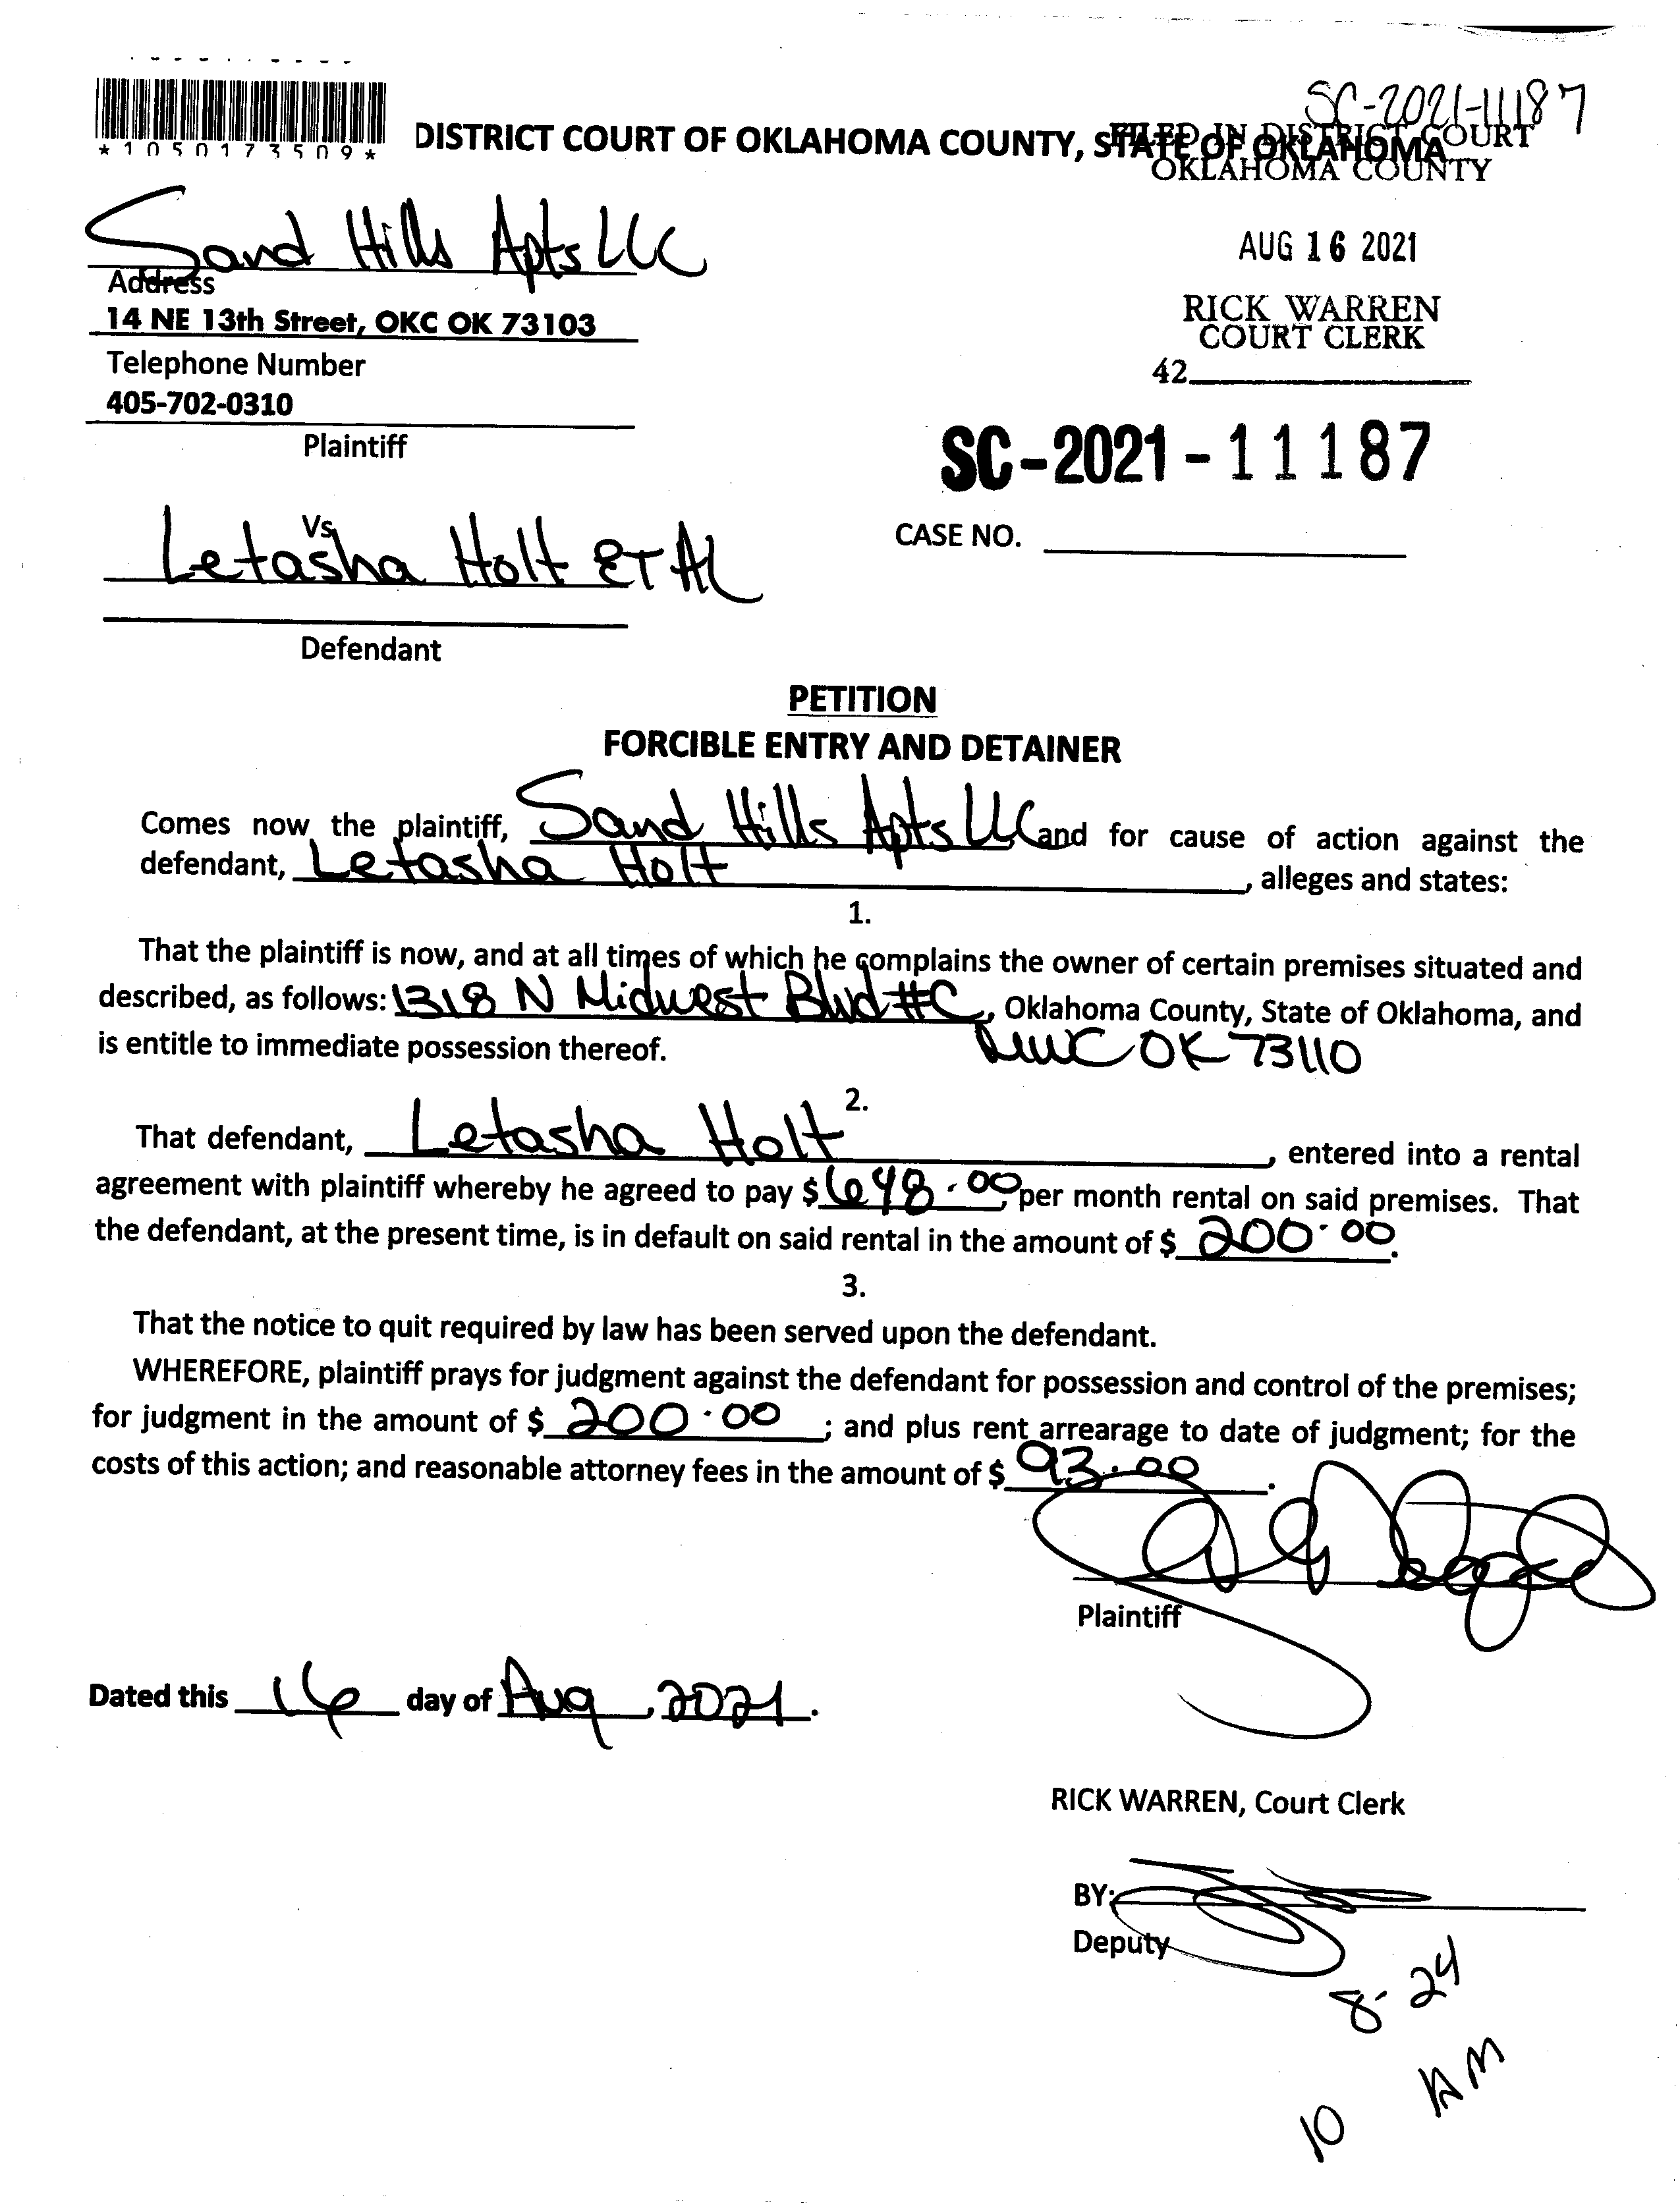 SC-2021-11187
*1050173509*
DISTRICT COURT OF OKLAHOMA COUNTY, STATE OF OKLAHOMA
FILED IN DISTRICT COURT
OKLAHOMA COUNTY
Sand Hills Apts LLC
AUG 16 2021
Address
14 NE 13th Street, OKC OK 73103
RICK WARREN
COURT CLERK
Telephone Number
42
405-702-0310
Plaintiff
SC-2021-11187
Vs
CASE NO.
Letasha Holt ET AL
Defendant
PETITION
FORCIBLE ENTRY AND DETAINER
Comes now the plaintiff, Sand Hills Apts LLC and for cause of action against the
defendant, Letasha Holt, alleges and states:
1.
That the plaintiff is now, and at all times of which he complains the owner of certain premises situated and
described, as follows: 1318 N Midwest Blvd #C, Oklahoma County, State of Oklahoma, and
is entitle to immediate possession thereof. MWC OK 73110
2.
That defendant, Letasha Holt, entered into a rental
agreement with plaintiff whereby he agreed to pay $648.00, per month rental on said premises. That
the defendant, at the present time, is in default on said rental in the amount of $ 200.00.
3.
That the notice to quit required by law has been served upon the defendant.
WHEREFORE, plaintiff prays for judgment against the defendant for possession and control of the premises;
for judgment in the amount of $ 200.00; and plus rent arrearage to date of judgment; for the
costs of this action; and reasonable attorney fees in the amount of $ 93.00.
Plaintiff
Dated this 16 day of Aug, 2021.
RICK WARREN, Court Clerk
BY:
Deputy
8-24
10 AM